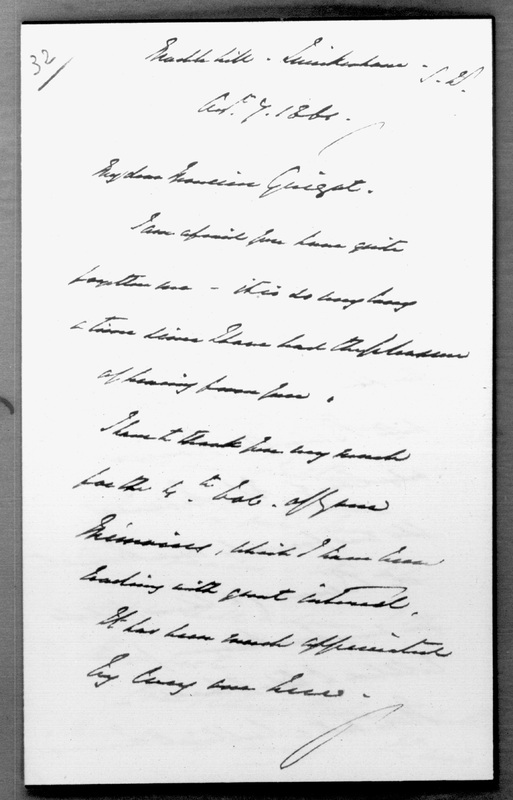 32
Marble hill - Twickenham - S.W.
Oct. 7. 1861.
My dear Monsieur Guizot.
I am afraid you have quite
forgotten me - it is so very long
a time since I have had the pleasure
of hearing from you.
I have to thank you very much
for the 4th Vol. of your
Mémoires, which I have been
reading with great interest.
It has been much appreciated
by every one here -